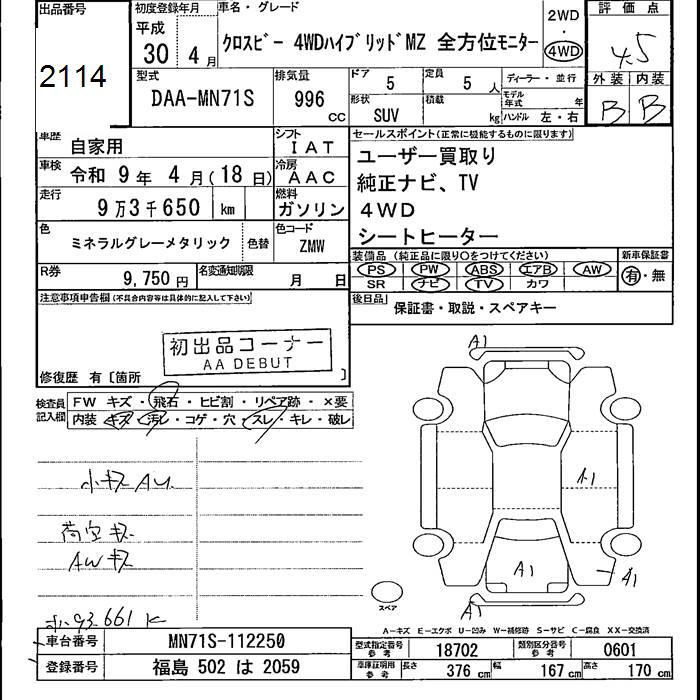 出品番号 初度登録年月 車名・グレード 2WD 評価点
平成 30年 4月 クロスビー 4WDハイブリッドMZ 全方位モニター ・ 4WD 4.5
2114
型式 排気量 ドア 5 定員 5人 ディーラー・並行 外装 内装
DAA-MN71S 996 CC 形状 SUV 積載 kg モデル年式 年 B B
ハンドル 左・右
車歴 自家用 シフト IAT セールスポイント(正常に機能するものに限ります)
車検 令和 9年 4月(18日) 冷房 AAC ユーザー買取り
走行 9万3千650 km 燃料 ガソリン 純正ナビ、TV
4WD
色 ミネラルグレーメタリック 色替 色コード ZMW シートヒーター
装備品 (純正品に限り○をつけてください) 新車保証書
R券 9,750円 名変通知期限 月 日 PS PW ABS エアB AW 有・無
SR ナビ TV カワ
注意事項申告欄(不具合内容等は具体的に記入して下さい) 後日品 保証書・取説・スペアキー
初出品コーナー
AA DEBUT
修復歴 有〔箇所 〕
検査員記入欄 FW キズ・飛石・ヒビ割・リペア跡・×要
内装 キズ・汚レ・コゲ・穴・スレ・キレ・破レ
A1
小キズAU
A1
荷室キズ
AWキズ
A1 A1
スペア A1
93661K
A-キズ E-エクボ U-凹み W-補修跡 S-サビ C-腐食 XX-交換済
車台番号 MN71S-112250 型式指定番号参考 18702 類別区分番号参考 0601
登録番号 福島 502 は 2059 車庫証明用参考 長さ 376cm 幅 167cm 高さ 170cm